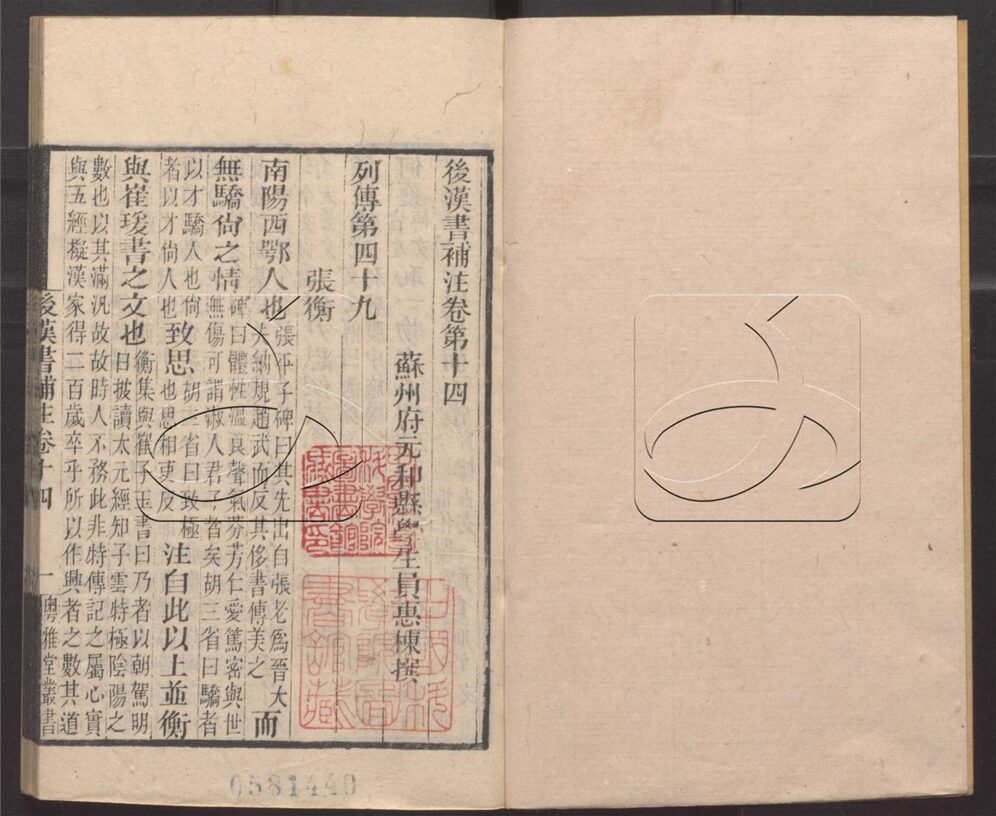 後漢書補注卷第十四
蘇州府元和縣學生員惠棟撰
列傳第四十九
張衡
南陽西鄂人也張平子碑曰其先出自張老爲晉大夫納規趙武而反其侈書傳美之而
無驕尙之情碑曰體性溫良聲氣芬芳仁愛篤密與世無傷可謂淑人君子者矣胡三省曰驕者
以才驕人也尙者以才尙人也致思胡三省曰致極也思相吏反注自此以上並衡
與崔瑗書之文也衡集與崔子玉書曰乃者以朝駕明日披讀太元經知子雲特極陰陽之
數也以其滿汎故故時人不務此非特傳記之屬心實
與五經擬漢家得二百歲卒乎所以作興者之數其道
後漢書補注卷十四 一 粵雅堂叢書
0581440